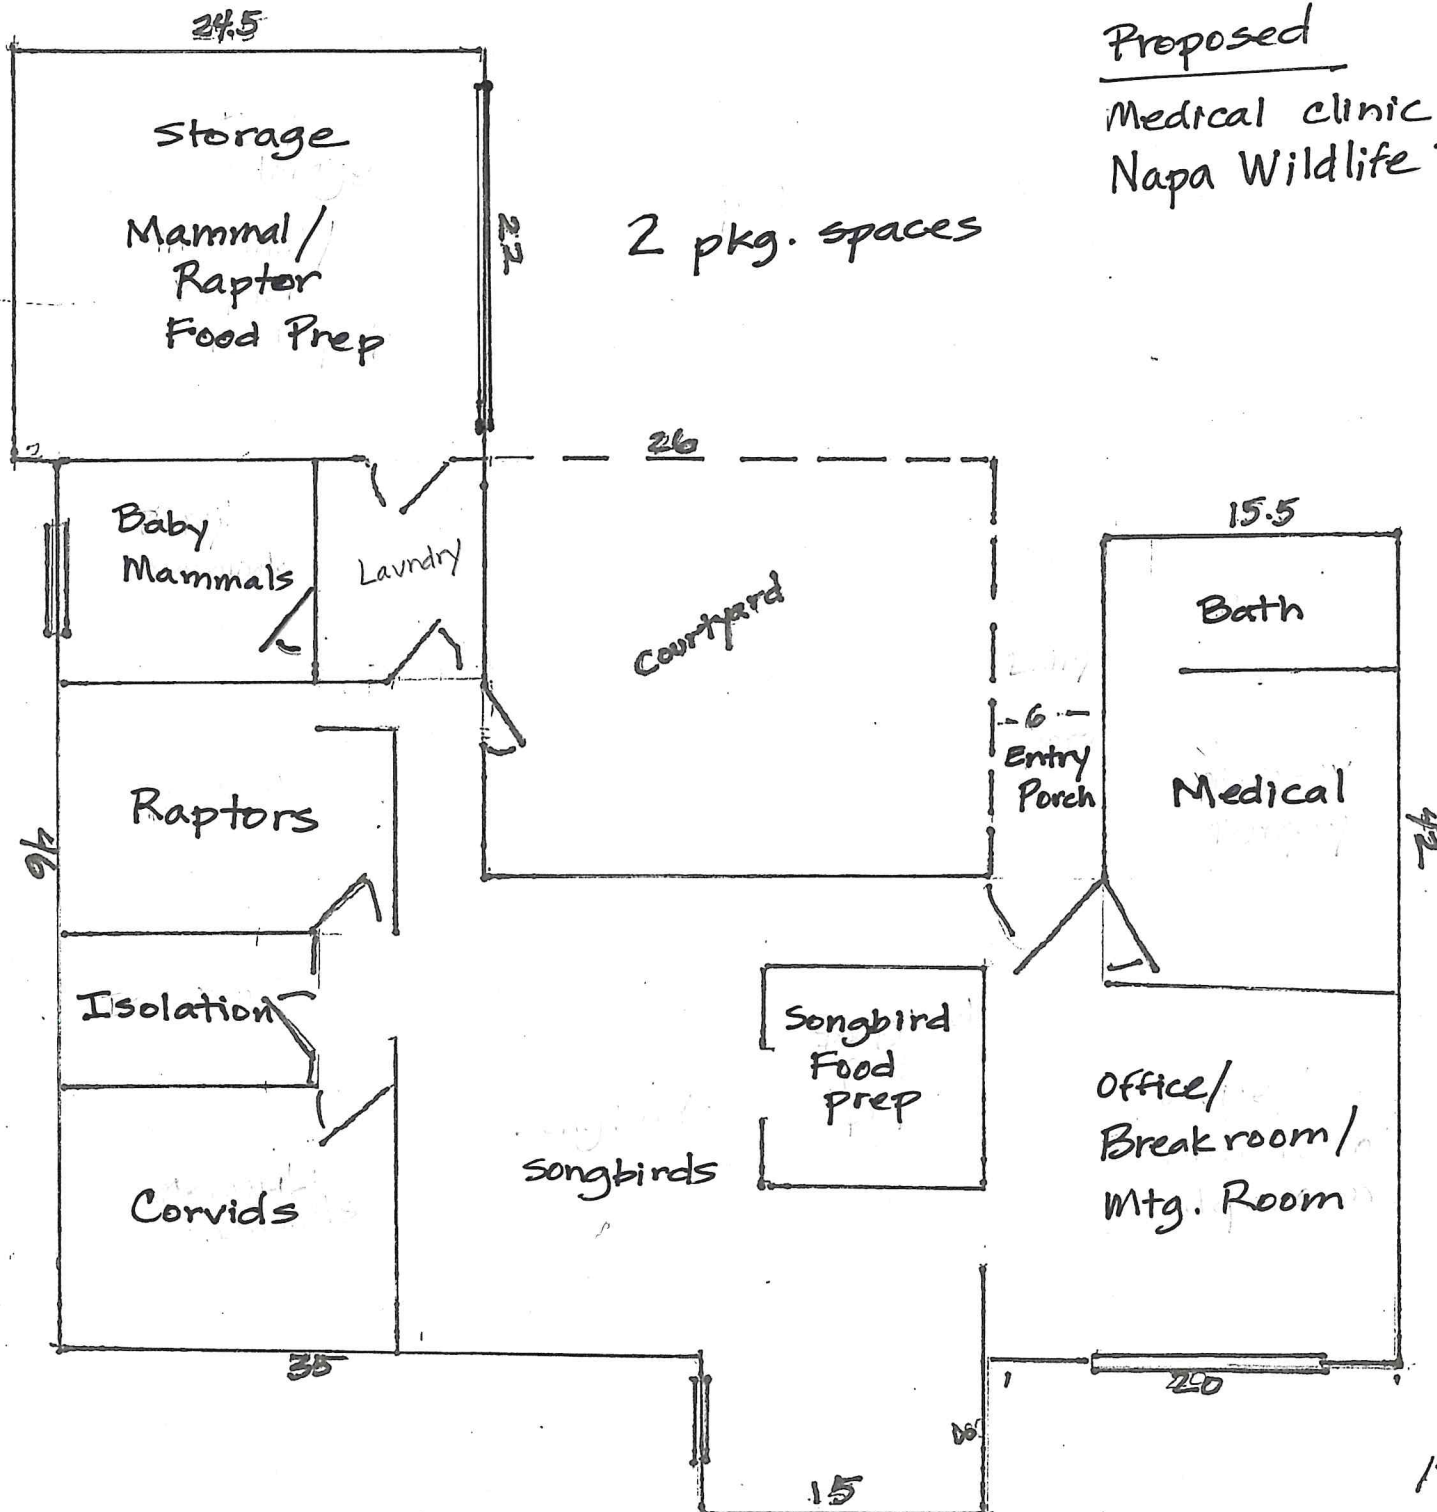 24.5
Proposed
Medical clinic
Napa Wildlife
Storage
Mammal/
Raptor
Food Prep
22
2 pkg. spaces
2
26
Baby
Mammals
Laundry
Courtyard
15.5
Bath
6
Entry
Porch
Medical
Raptors
46
42
Isolation
Songbird
Food
prep
Office/
Breakroom/
Mtg. Room
Songbirds
Corvids
35
1
20
15